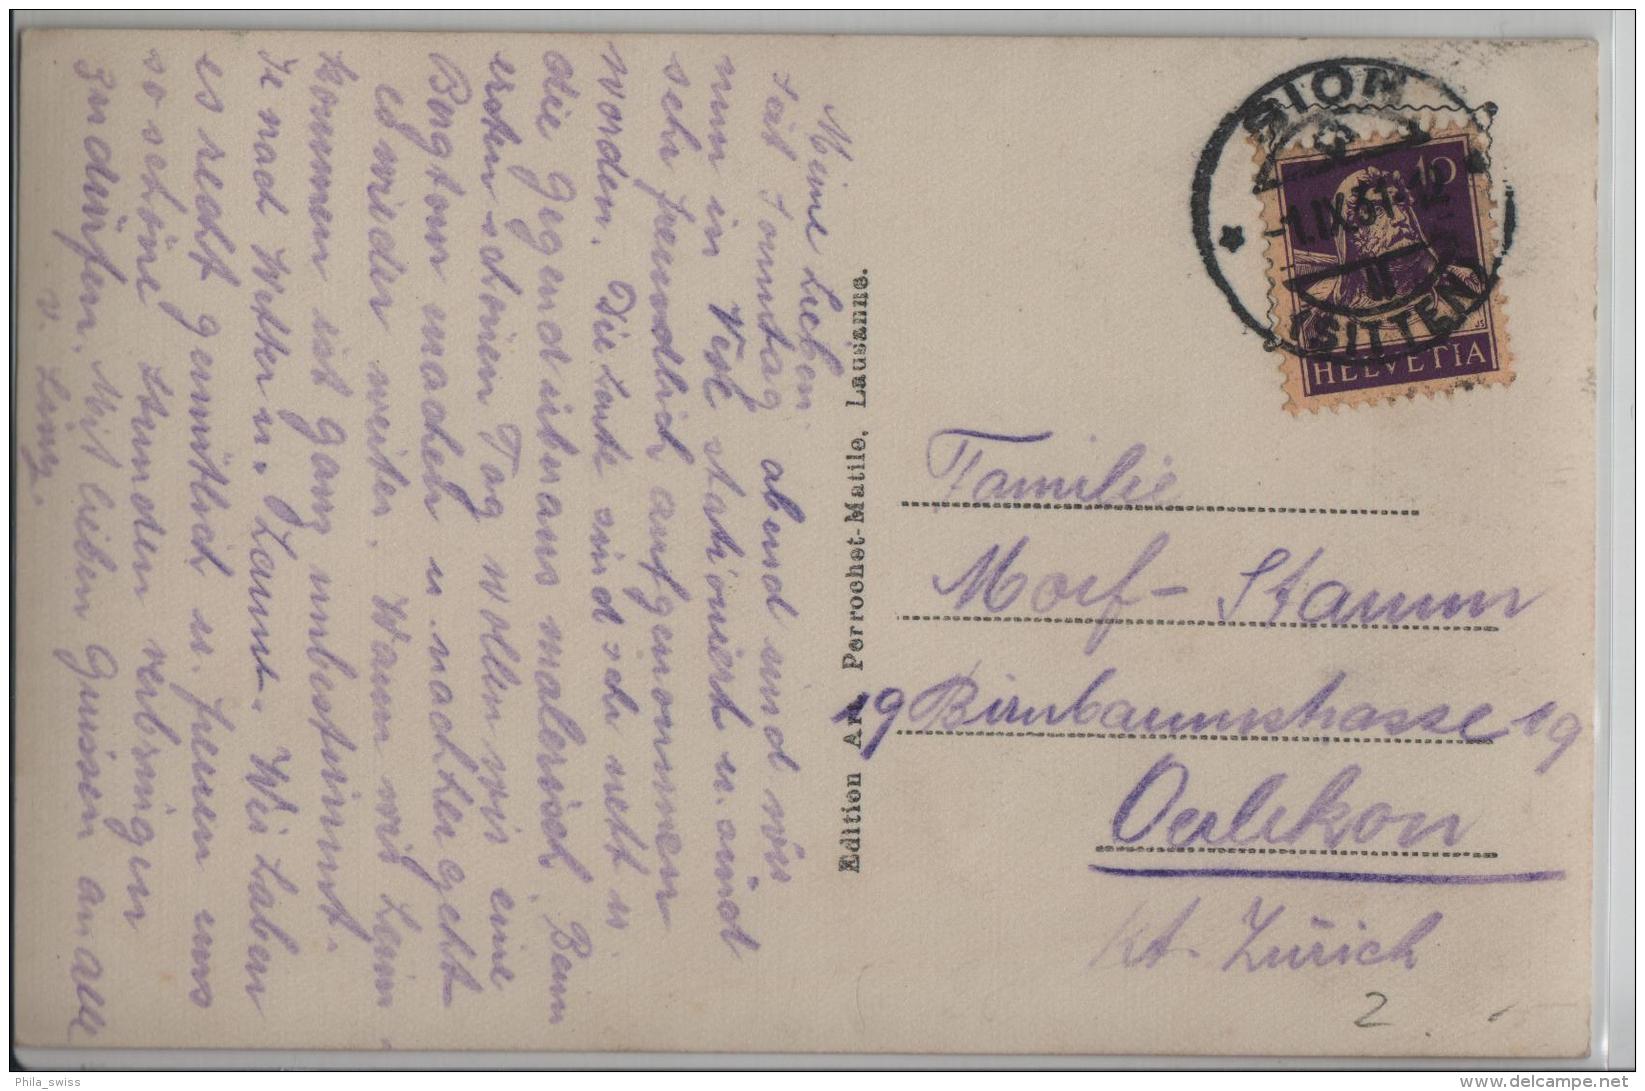 Meine Lieben
Seit Sonntag abend sind wir
nun in Vex stationiert u. sind
sehr freundlich aufgenommen
worden. Die Leute sind sehr nett u.
die Gegend überaus malerisch. Beim
ersten schönen Tag wollen wir eine
Bergtour machen u. nachher geht
es wieder weiter. Wann wir heim
kommen ist ganz unbestimmt.
Je nach Wetter u. Laune. Wir haben
es recht gemütlich u. freuen uns
so schöne Stunden verbringen
zu dürfen. Mit lieben Grüssen an alle
v.
Edition Art. Perrochet-Matile, Lausanne.
SION
1.IX.31.12
II
(SITTEN)
10
HELVETIA
Familie
Morf-Stamm
19 Birnbaumstrasse 19
Oerlikon
Kt. Zürich
2.
Phila_swiss
www.delcampe.net